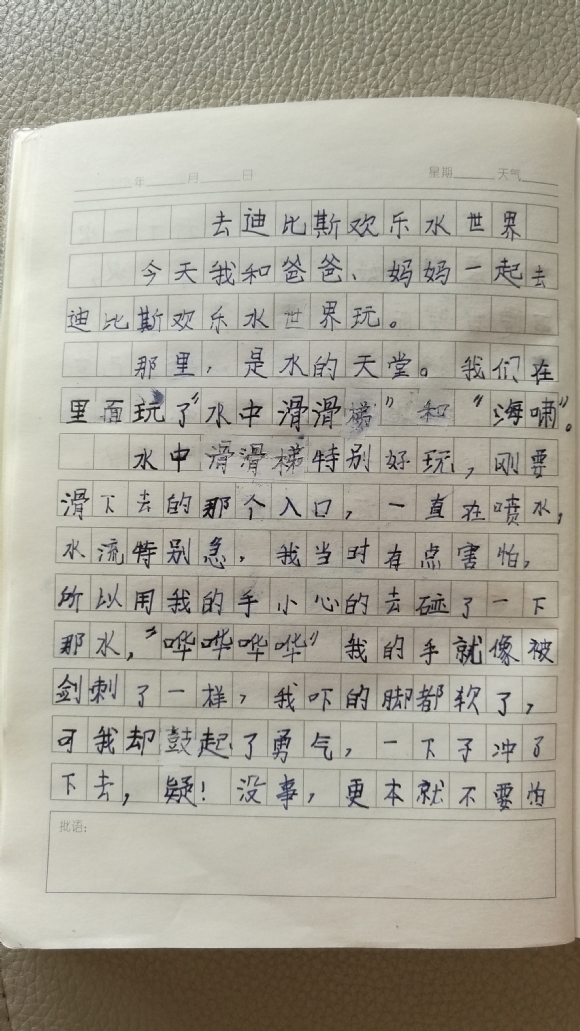 年 月 日 星期 天气
去迪比斯欢乐水世界
今天我和爸爸、妈妈一起去
迪比斯欢乐水世界玩。
那里，是水的天堂。我们在
里面玩了“水中滑滑梯”和“海啸”。
水中滑滑梯特别好玩，刚要
滑下去的那个入口，一直在喷水，
水流特别急，我当时有点害怕，
所以用我的手小心的去碰了一下
那水，“哗哗哗哗”我的手就像被
剑刺了一样，我吓的脚都软了，
可我却鼓起了勇气，一下子冲了
下去，疑！没事，更本就不要怕
批语：